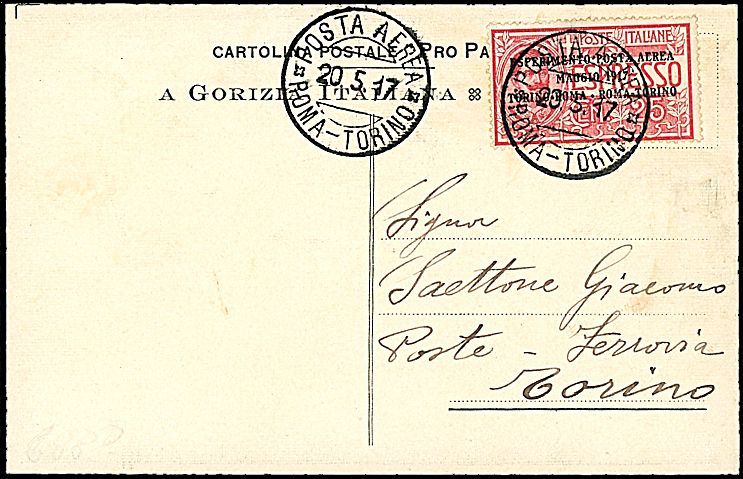 CARTOLINA POSTALE PRO PA
A GORIZIA ITALIANA
POSTA AEREA
20.5.17
ROMA-TORINO
POSTE ITALIANE
ESPERIMENTO POSTA AEREA
MAGGIO 1917
TORINO-ROMA · ROMA-TORINO
ESPRESSO
25
POSTA AEREA
20.5.17
ROMA-TORINO
Signor
Saettone Giacomo
Poste - Ferrovia
Torino